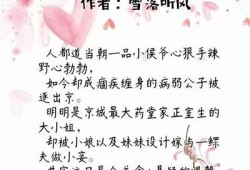 作者：雪落听风
人都道当朝一品小侯爷心狠手辣
野心勃勃，
如今却成痼疾缠身的病弱公子被
逐出京。
明明是京城最大药堂家正室生的
大小姐，
却被小娘以及妹妹设计嫁与一鳏
夫做小妾。